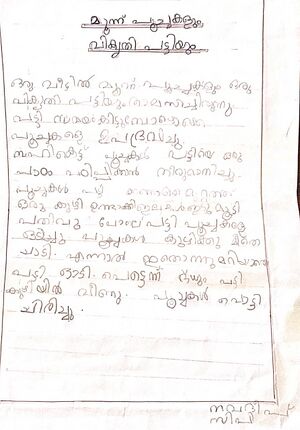 മൂന്ന് പൂച്ചകളും
വികൃതി പട്ടിയും
ഒരു വീട്ടിൽ മൂന്ന് പൂച്ചകളും ഒരു
വികൃതി പട്ടിയും താമസിച്ചിരുന്നു.
പട്ടി സമയം കിട്ടുമ്പോളൊക്കെ
പൂച്ചകളെ ഉപദ്രവിച്ചു
സഹികെട്ട് പൂച്ചകൾ പട്ടിയെ ഒരു
പാഠം പഠിപ്പിക്കാൻ തീരുമാനിച്ചു.
പൂച്ചകൾ
ഒരു കുഴി ഉണ്ടാക്കി ഇലകൾ മൂടി
പതിവു പോലെ പട്ടി പൂച്ചയെ
ഓടിച്ചു പൂച്ചകൾ കുഴിക്കു മീതെ
ചാടി. എന്നാൽ ഇതൊന്നുമറിയാതെ
പട്ടി ഓടി. പെട്ടെന്ന് പട്ടി
കുഴിയിൽ വീണു. പൂച്ചകൾ പൊട്ടി
ചിരിച്ചു.
നവദീപ്
സിപി